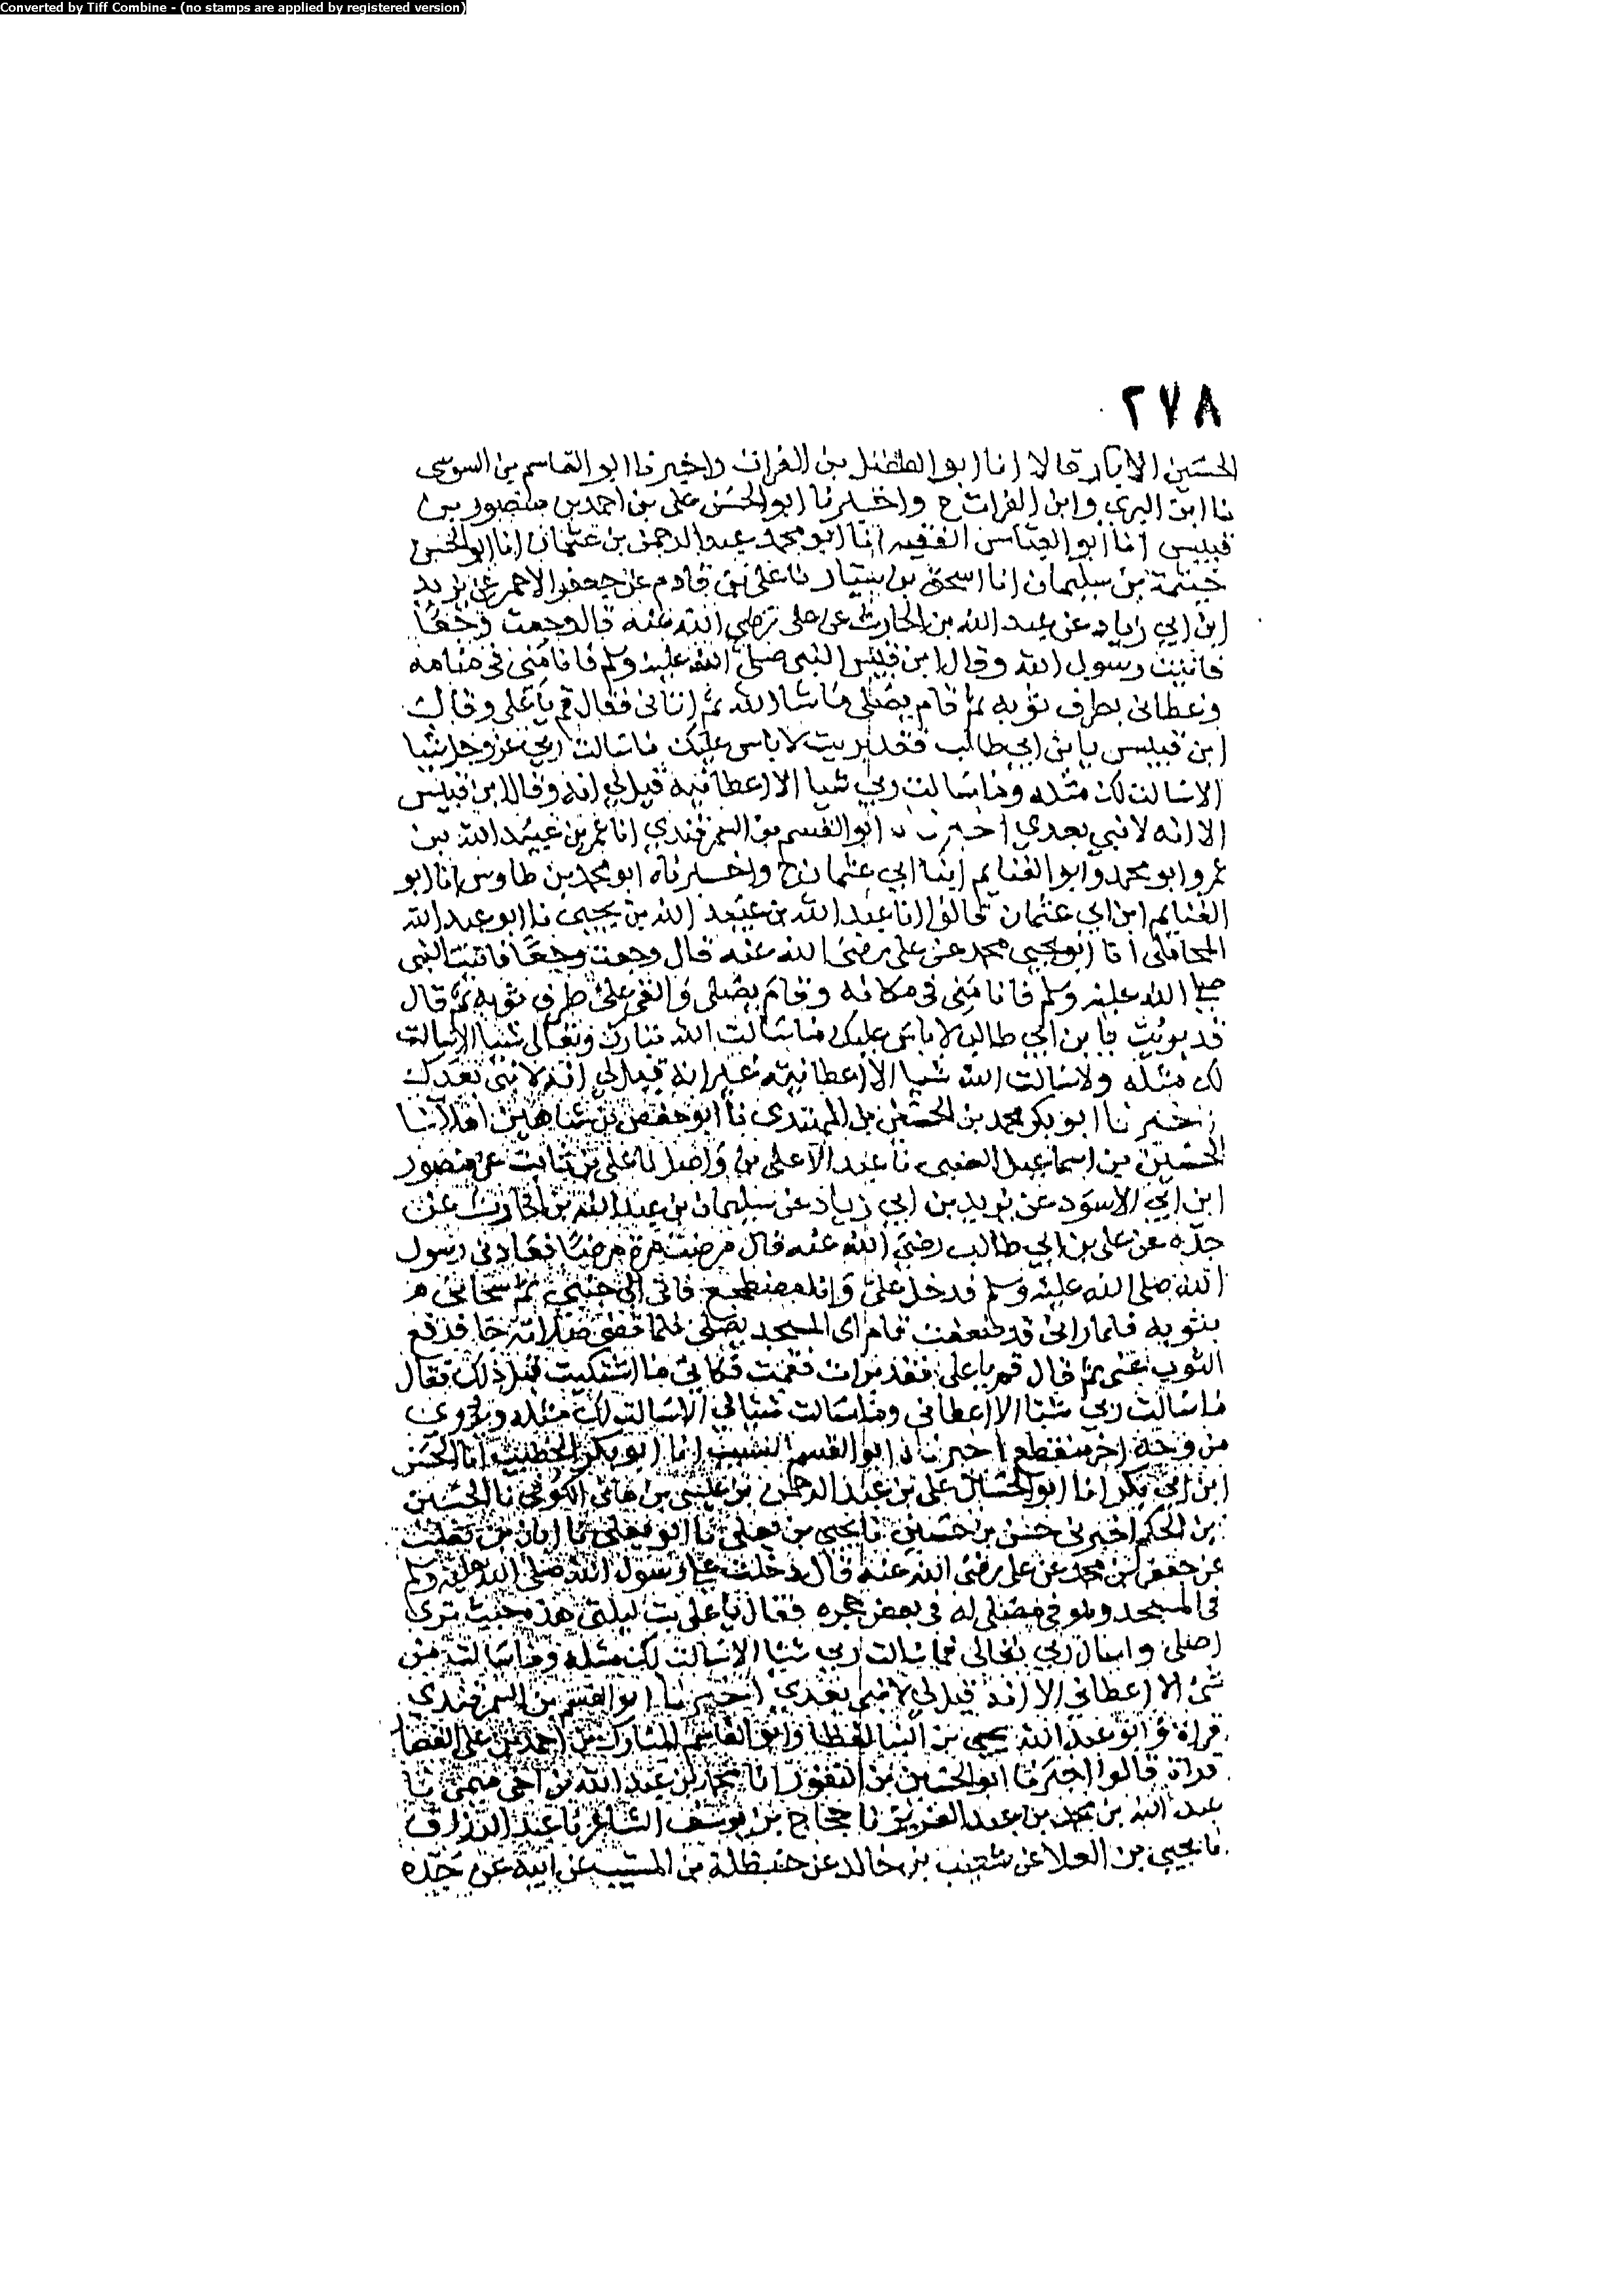 Converted by Tiff Combine - (no stamps are applied by registered version)
٢٧٨
الحسين الابار قالا انا ابو الفضل بن الفرات واخبرنا ابو القاسم بن السوسي
نا ابن البري وابن الفرات ح واخبرنا ابو الحسن علي بن احمد بن منصور بن
قبيس انا ابو العباس الفقيه انا ابو محمد عبد الرحمن بن عثمان انا ابو الحسن
خيثمة بن سليمان انا اسحق بن سيار نا علي بن قادم عن جعفر الاحمر عن يزيد
ابن ابي زياد عن عبد الله بن الحارث عن علي رضي الله عنه قال وجعت وجعا
فاتيت رسول الله وقال ابن قبيس النبي صلى الله عليه وسلم فانامني في منامه
وغطاني بطرف ثوبه ثم قام يصلي ما شاء الله ثم اتاني فقال قم يا علي وقال
ابن قبيس يا بن ابي طالب فقد بريت لا باس عليك ما سالت ربي عز وجل شيا
الا سالت لك مثله وما سالت ربي شيا الا اعطانيه قيل لي انه وقال ابن قبيس
الا انه لا نبي بعدي اخبرنا ابو القسم بن السمرقندي انا عمر بن عبيد الله بن
عمر وابو محمد وابو الغنايم ابنا ابي عثمان ح واخبرناه ابو محمد بن طاوس انا ابو
الغنايم ابن ابي عثمان قالوا انا عبد الله بن عبيد الله بن يحيى نا ابو عبد الله
المحاملي انا ابو يحيى محمد عن علي رضى الله عنه قال وجعت وجعا فاتيت النبي
صلى الله عليه وسلم فانامني في مكانه وقام يصلي والقى علي طرف ثوبه ثم قال
قد بريت يا بن ابي طالب لا باس عليك ما سالت الله تبارك وتعالى شيا الا سالت
لك مثله ولا سالت الله شيا الا اعطانيه غير انه قيل لي انه لا نبي بعدك
اخبرنا ابو بكر محمد بن الحسين بن المهتدي نا ابو حفص بن شاهين املا نا
الحسين بن اسماعيل الضبي نا عبد الاعلى بن واصل نا علي بن ثابت عن منصور
ابن ابي الاسود عن يزيد بن ابي زياد عن سليمان بن عبد الله بن الحارث عن
جده عن علي بن ابي طالب رضي الله عنه قال مرضت مرة مرضا فعادني رسول
الله صلى الله عليه وسلم فدخل علي وانا مضطجع فاتى الى جنبي ثم سجاني
بثوبه فلما راني قد ضعفت قام الى المسجد يصلي فلما قضى صلاته جا فرفع
الثوب عني ثم قال قم يا علي فقد برات فقمت فكاني ما اشتكيت قبل ذلك فقال
ما سالت ربي شيا الا اعطاني وما سالت شيا لي الا سالت لك مثله وقد روي
من وجه اخر منقطع اخبرناه ابو القسم النسيب انا ابو بكر الخطيب انا الحسن
ابن ابي بكر انا ابو الحسين علي بن عبد الرحمن بن عيسى بن ماتي الكوفي نا الحسين
بن الحكم اخبرني حسن بن حسين نا يحيى بن يعلى نا ابو يعلى نا ابان بن تغلب
عن جعفر بن محمد عن علي رضى الله عنه قال دخلت على رسول الله صلى الله عليه وسلم
في المسجد وهو في مصلى له في بعض حجره فقال يا علي بت ليلتي هذه حيث ترى
اصلي واسال ربي تعالى فما سالت ربي شيا الا سالت لك مثله وما سالته من
شى الا اعطاني الا انه قيل لي لا نبي بعدي اخبرنا ابو القسم بن السمرقندي
قراة وابو عبد الله يحيى بن البنا لفظا وابو القاسم المبارك بن احمد بن علي القصار
قراة قالوا اخبرنا ابو الحسين بن النقور انا محمد بن عبد الله بن اخي ميمي نا
عبد الله بن محمد بن عبد العزيز نا حجاج بن يوسف الشاعر نا عبد الرزاق
نا يحيى بن العلا عن شعيب بن خالد عن حنظلة بن المسيب عن ابيه عن جده